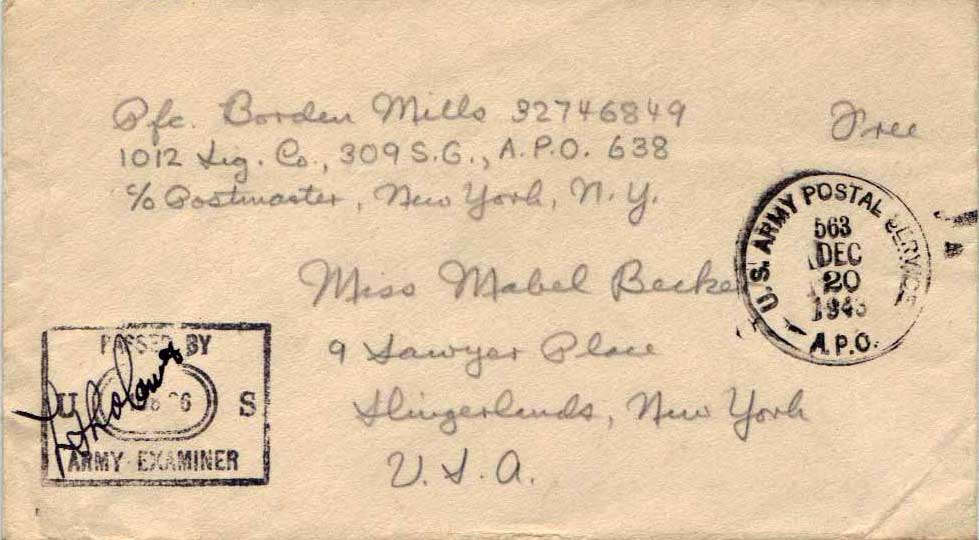 Pfc. Borden Mills 32746849
Free
1012 Sig. Co., 309 S.G., A.P.O. 638
c/o Postmaster, New York, N.Y.
U.S. ARMY POSTAL SERVICE
563
DEC
20
1943
A.P.O.
Miss Mabel Becke
9 Sawyer Place
Slingerlands, New York
U.S.A.
PASSED BY
U S
ARMY EXAMINER